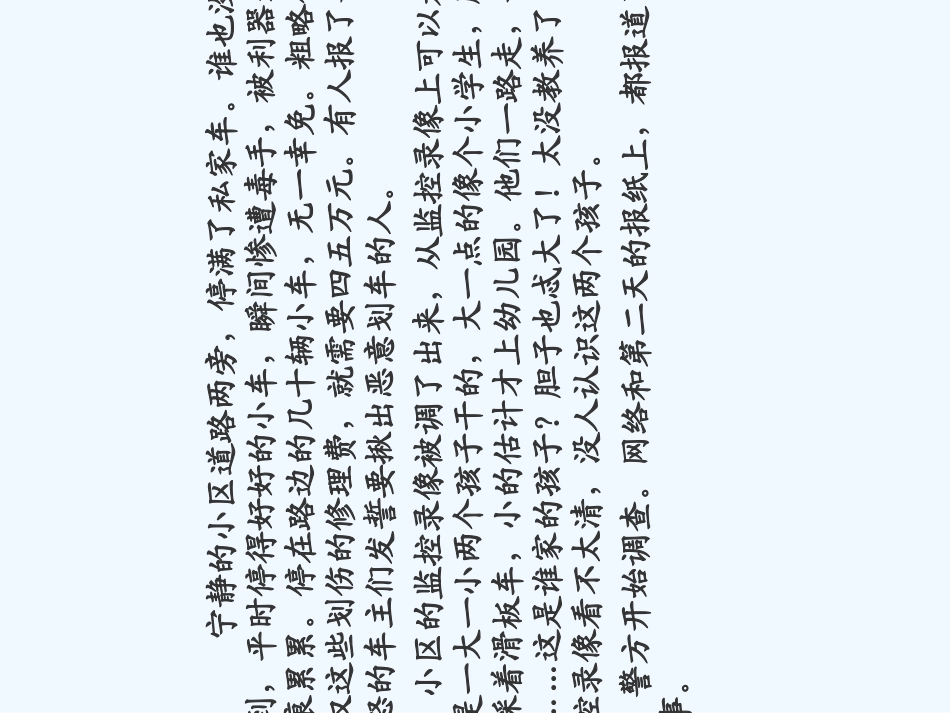 宁静的小区道路两旁，停满了私家车。谁也没
到，平时停得好好的小车，瞬间惨遭毒手，被利器
痕累累。停在路边的几十辆小车，无一幸免。粗略
仅这些划伤的修理费，就需要四五万元。有人报了
怒的车主们发誓要揪出恶意划车的人。
小区的监控录像被调了出来，从监控录像上可以
是一大一小两个孩子干的，大一点的像个小学生，
踩着滑板车，小的估计才上幼儿园。他们一路走，
……这是谁家的孩子？胆子也忒大了！太没教养了
控录像看不太清，没人认识这两个孩子。
警方开始调查。网络和第二天的报纸上，都报道
事。